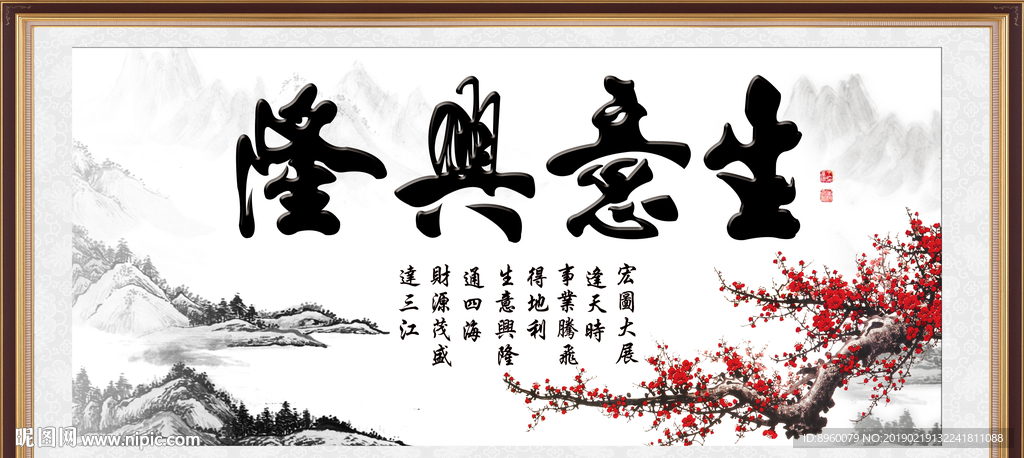 生意興隆
宏圖大展
逢天時
事業騰飛
得地利
生意興隆
通四海
財源茂盛
達三江
昵图网 www.nipic.com
ID:8960079 NO:20190219132241811088